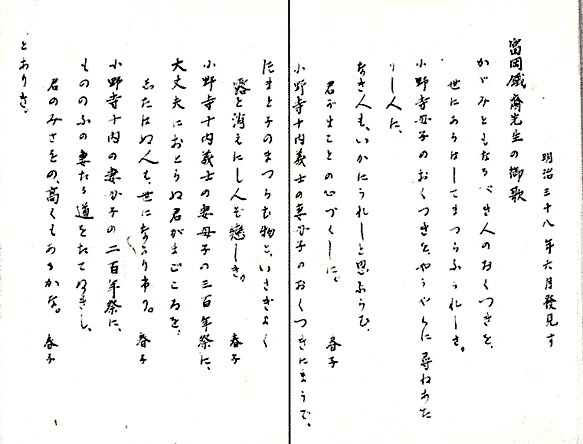 明治三十八年六月發見す
富岡鐵齋先生の御歌
かゞみともなるべき人のおくつきを、
世にあらはしてまつらふうれしさ。
小野寺母子のおくつきを、やうやくに尋ねあた
りし人に、
なき人も、いかにうれしと思ふらむ、
君がまことの心づくしに。 春子
小野寺十内義士の妻のおくつきにまうで。
たまと子のまつらむ物と、いさぎよく
露と消えにし人ぞ戀しき。 春子
小野寺十内義士の妻母子の三百年祭に、
大丈夫におとらぬ君がまごころを、
したはぬ人も、世になかりけり。 春子
小野寺十内の妻の二百年祭に、
もののふの妻たる道をたてぬきし、
君のみさをの、高くもあるかな。 春子
とありき。